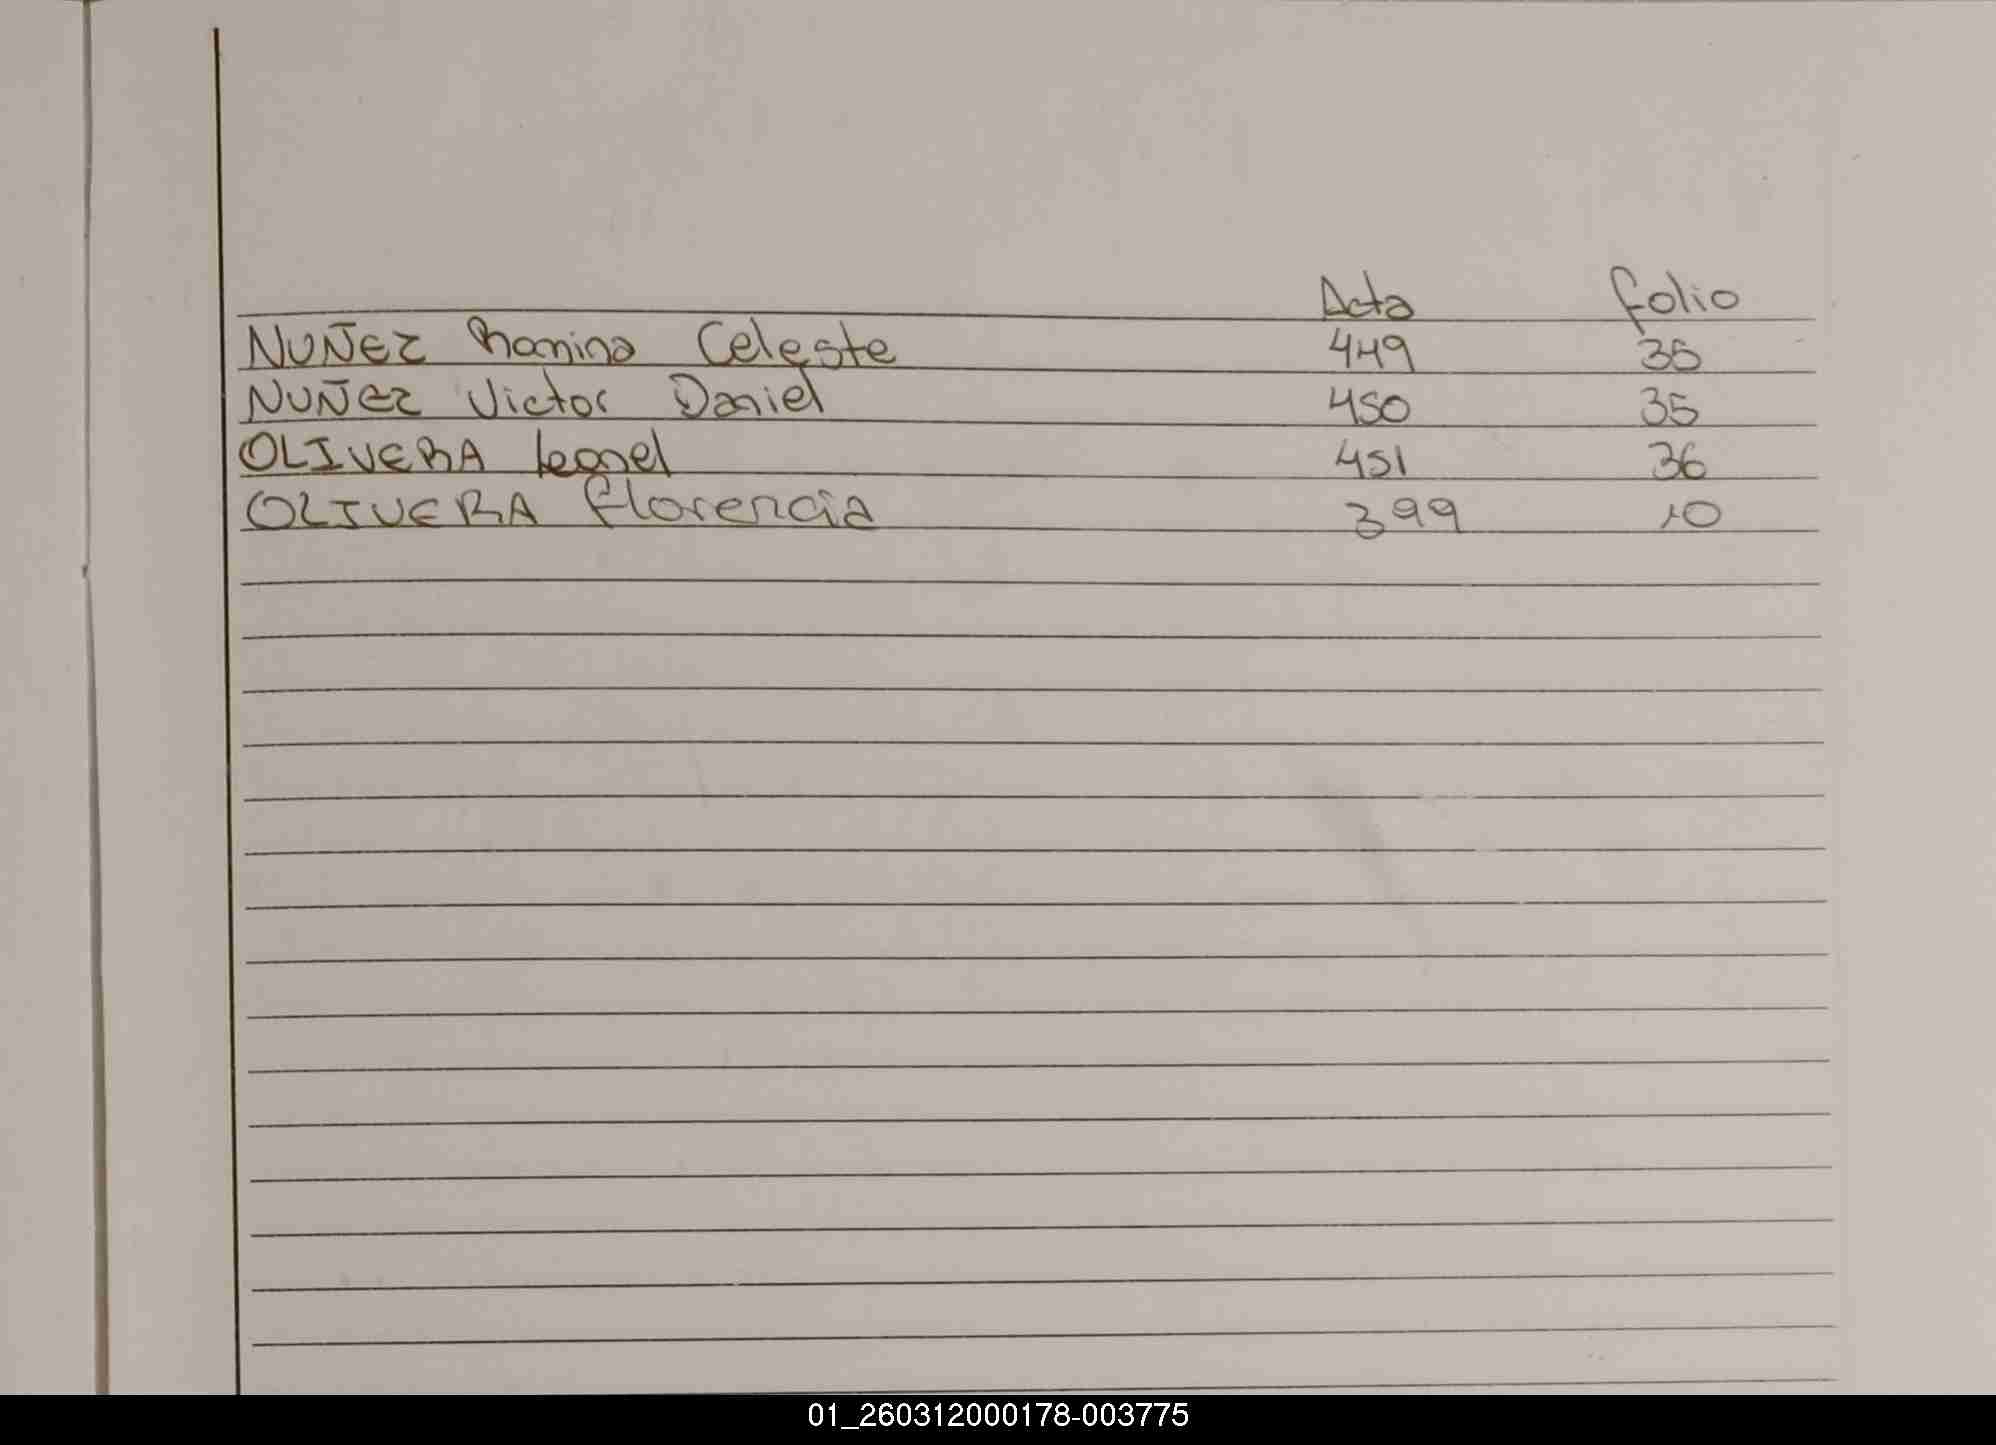 Acta folio
NUÑEZ Romina Celeste 449 35
NUÑEZ Victor Daniel 450 35
OLIVERA Leonel 451 36
OLIVERA florencia 399 10
01_260312000178-003775